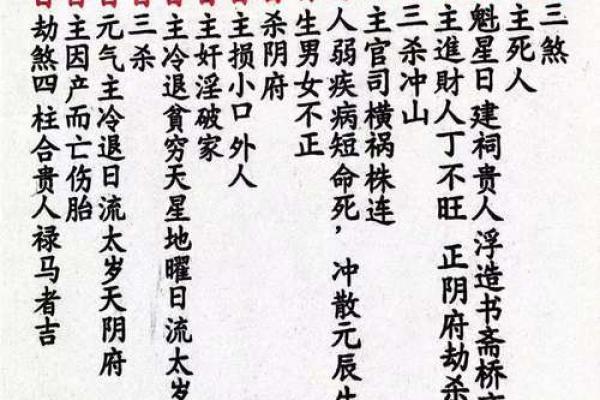 三煞
主死人
魁星日建祠贵人 浮造书斋桥
主進財人丁不旺 正阴府劫杀
三杀冲山
主官司横祸株连
人弱疾病短命死，冲散元辰生
生男女不正
杀阴府
主损小口 外人
主奸淫破家
主冷退貧穷天星地曜日流太岁
三杀
元气主冷退日流太岁天阴府
主因产而亡伤胎
劫煞四柱合贵人禄马者吉